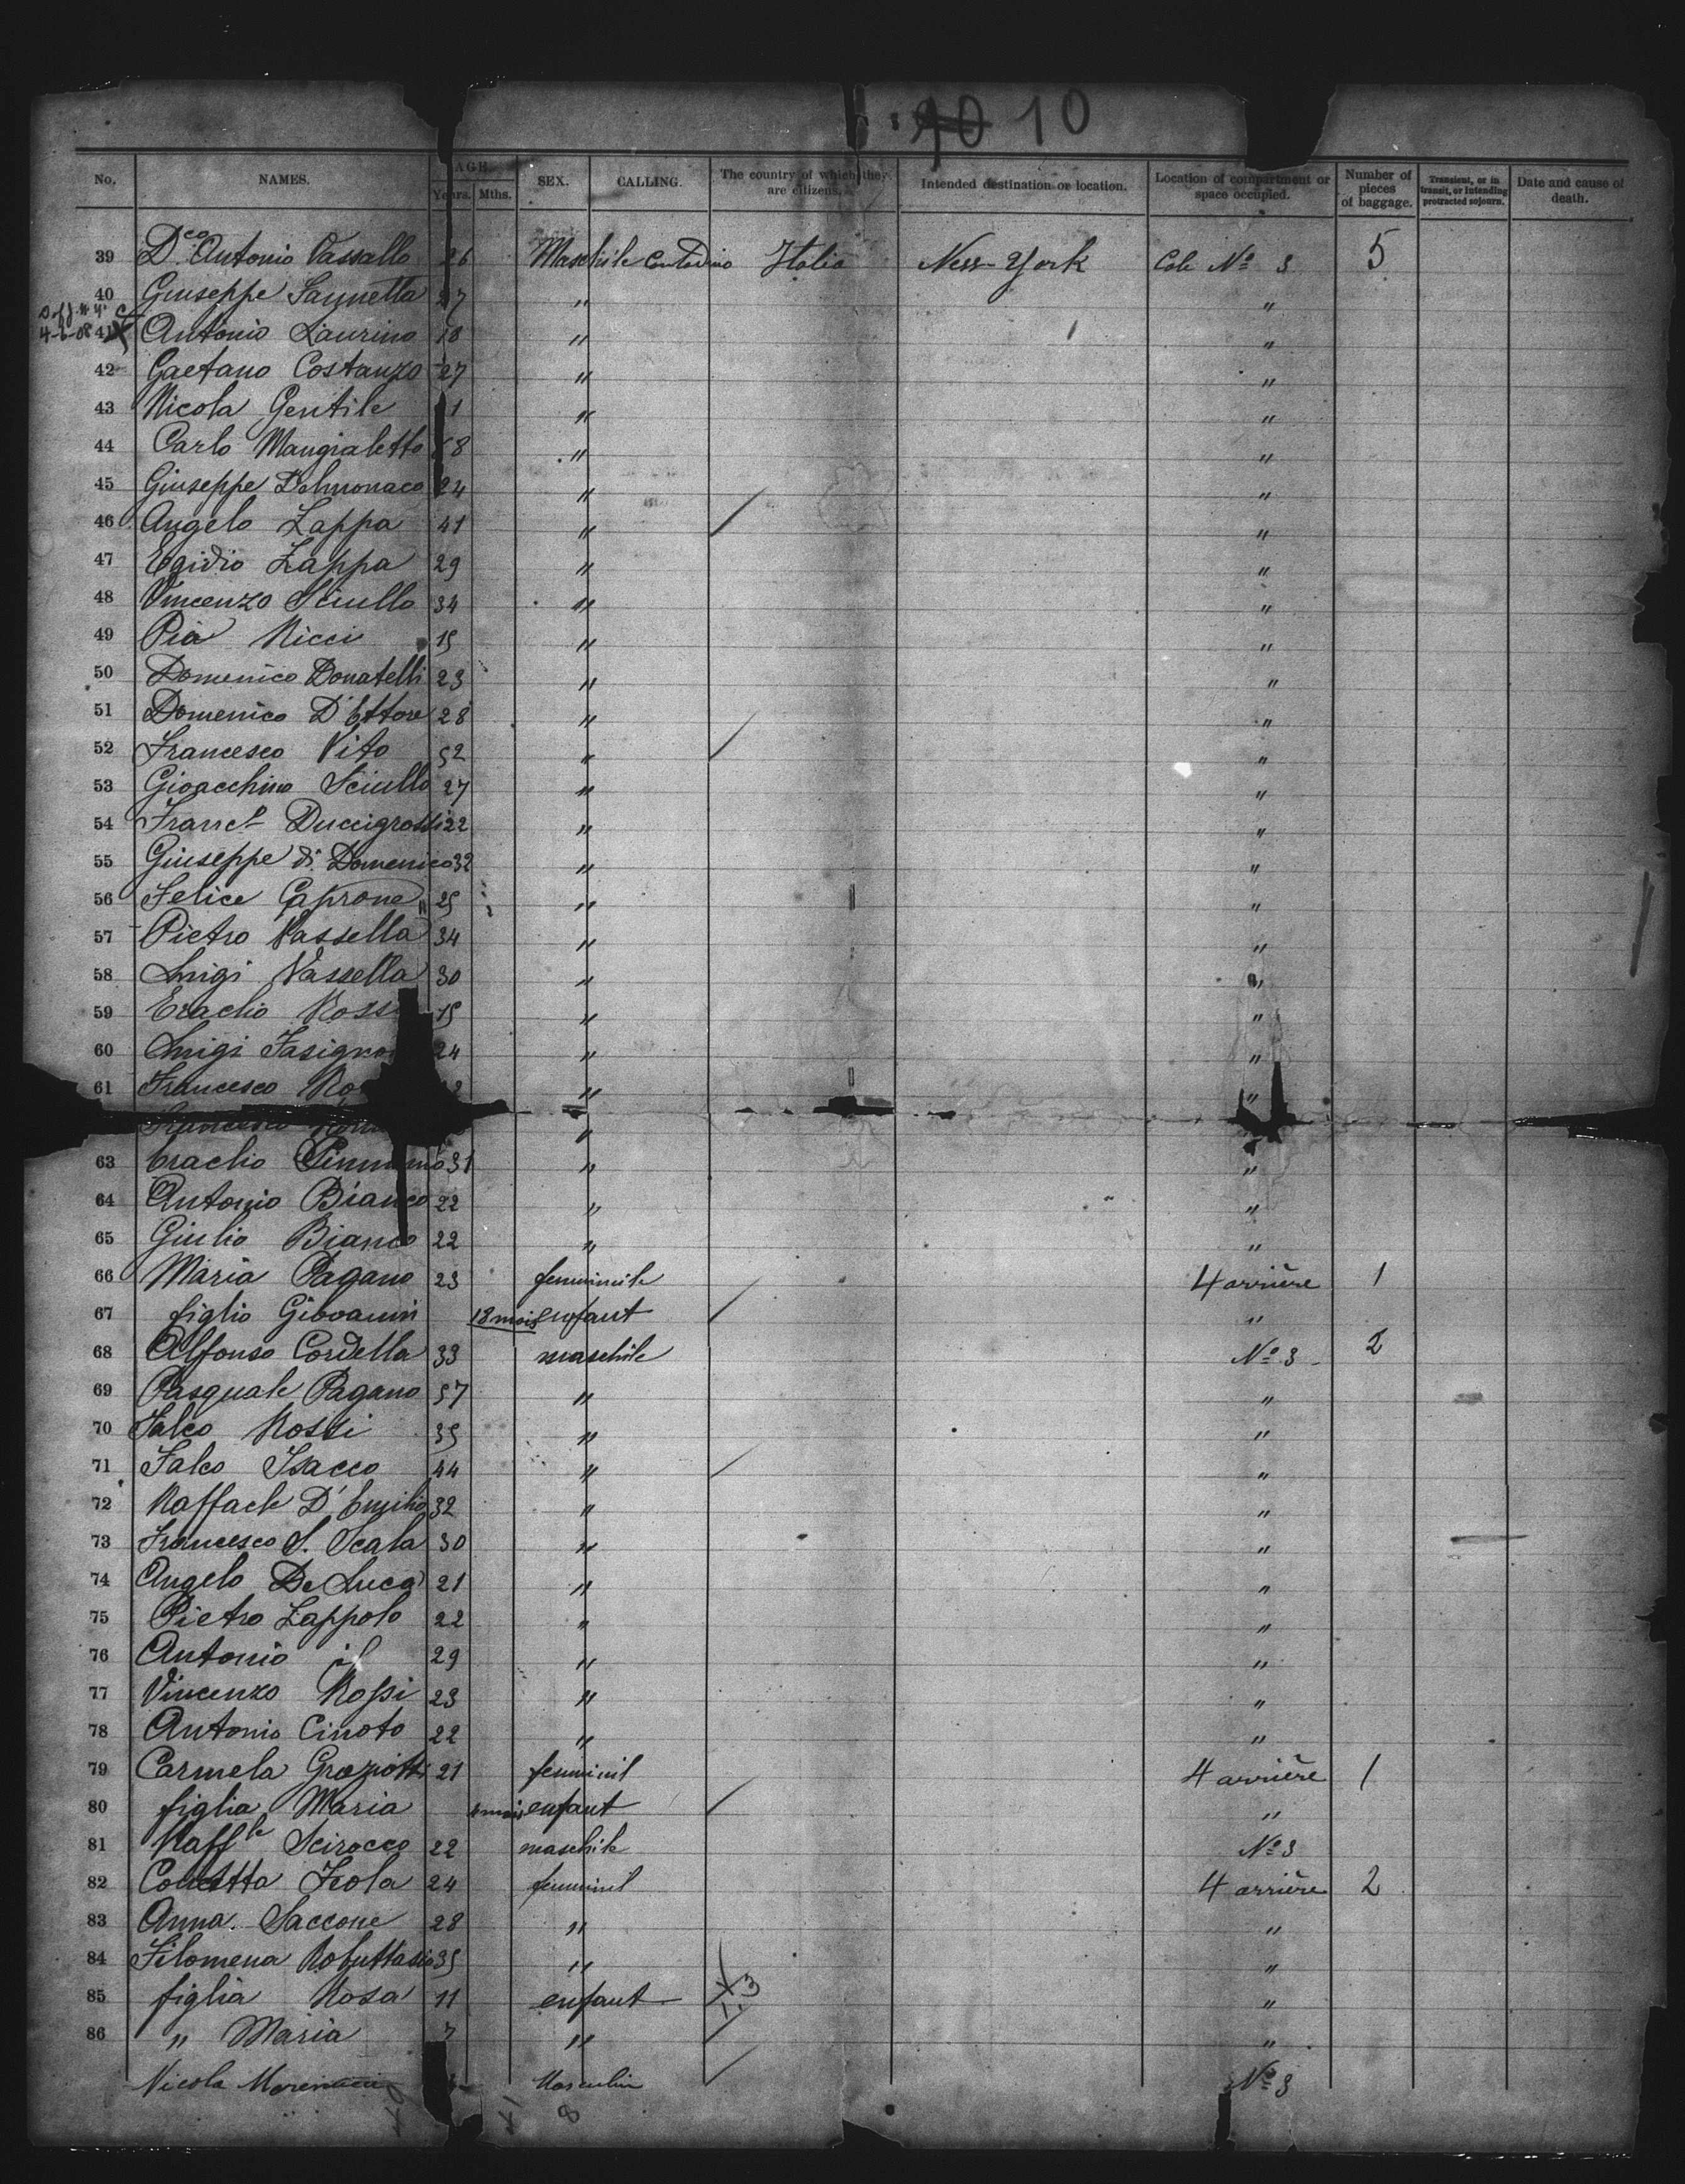 10 10
No. NAMES. AGE. Years. Mths. SEX. CALLING. The country of which they are citizens. Intended destination or location. Location of compartment or space occupied. Number of pieces of baggage. Transient, or in transit, or intending protracted sojourn. Date and cause of death.
39 Dco Antonio Vassallo 26 Maschile Contadino Italia New-York Cale No 3 5
40 Giuseppe 27 " "
4-2-08 41 X Antonio Laurino 18 " "
42 Gaetano Costanzo 27 " "
43 Nicola Gentile " "
44 Carlo Mangialetto " "
45 Giuseppe Delmonaco 24 " "
46 Angelo Zappa 41 " "
47 Egidio Zappa 29 " "
48 Vincenzo Sciullo 34 " "
49 Pia Ricci 15 " "
50 Domenico Donatelli 23 " "
51 Domenico D'Ettore 28 " "
52 Francesco Vito 52 " "
53 Gioacchino Sciullo 27 " "
54 Franco Duccigrossi 22 " "
55 Giuseppe di Domenico 32 " "
56 Felice Caprone 25 " "
57 Pietro Vassella 34 " "
58 Luigi Vassella 30 " "
59 Eraclio Ross 15 " "
60 Luigi 24 " "
61 Francesco " "
Francesco " "
63 Eraclio 31 " "
64 Antonio Bianco 22 " "
65 Giulio Bianco 22 " "
66 Maria Pagano 23 femminile 4 arrière 1
67 figlio Giovanni 18 mois enfant "
68 Alfonso Cordella 33 maschile No 3 2
69 Pasquale Pagano 57 " "
70 Falco Rossi 35 " "
71 Falco Isacco 44 " "
72 Raffaele D'Emilio 32 " "
73 Francesco S. Scala 30 " "
74 Angelo De Luca 21 " "
75 Pietro Zappolo 22 " "
76 Antonio id 29 " "
77 Vincenzo Rossi 23 " "
78 Antonio Cirroto 22 " "
79 Carmela Graziotti 21 femminil 4 arrière 1
80 figlia Maria mois enfant "
81 Raffle Scirocco 22 maschile No 3
82 Concetta Isola 24 femminil 4 arrière 2
83 Anna Saccone 28 " "
84 Filomena 35 " "
85 figlia Rosa 11 enfant X 3 "
86 " Maria 7 " "
Nicola Masculin No 3
41 8